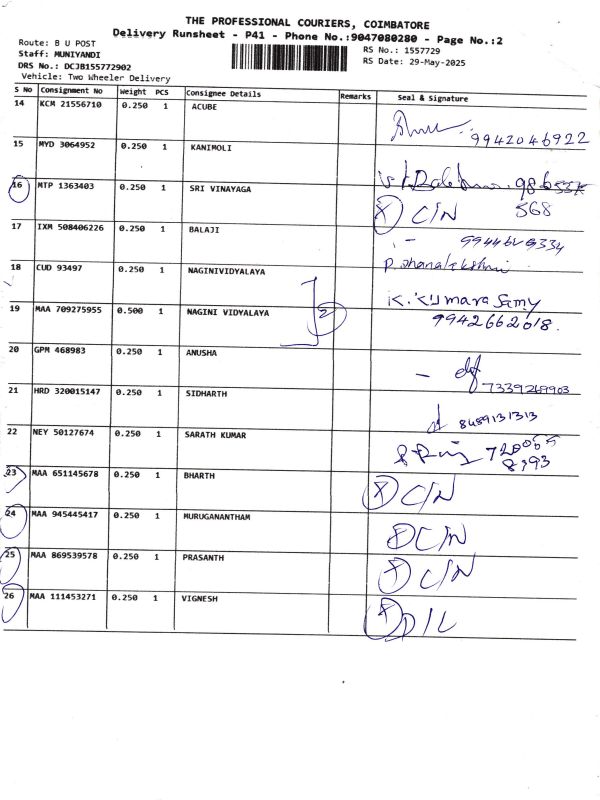 THE PROFESSIONAL COURIERS, COIMBATORE
Delivery Runsheet - P41 - Phone No.:9047080280 - Page No.:2
Route: B U POST
RS No.: 1557729
Staff: MUNIYANDI
RS Date: 29-May-2025
DRS No.: DCJB155772902
Vehicle: Two Wheeler Delivery
S No Consignment No Weight PCS Consignee Details Remarks Seal & Signature
14 KCM 21556710 0.250 1 ACUBE
9942046922
15 MYD 3064952 0.250 1 KANIMOLI
16 MTP 1363403 0.250 1 SRI VINAYAGA
568
C/N
17 IXM 508406226 0.250 1 BALAJI
18 CUD 93497 0.250 1 NAGINIVIDYALAYA
P. Dhanalakshmi
19 MAA 709275955 0.500 1 NAGINI VIDYALAYA 2 K. Kumara Samy
9942662018.
20 GPM 468983 0.250 1 ANUSHA
7339269903
21 HRD 320015147 0.250 1 SIDHARTH
8489131313
22 NEY 50127674 0.250 1 SARATH KUMAR
8393
23 MAA 651145678 0.250 1 BHARTH
C/N
24 MAA 945445417 0.250 1 MURUGANANTHAM
C/N
25 MAA 869539578 0.250 1 PRASANTH
C/N
26 MAA 111453271 0.250 1 VIGNESH
D/L